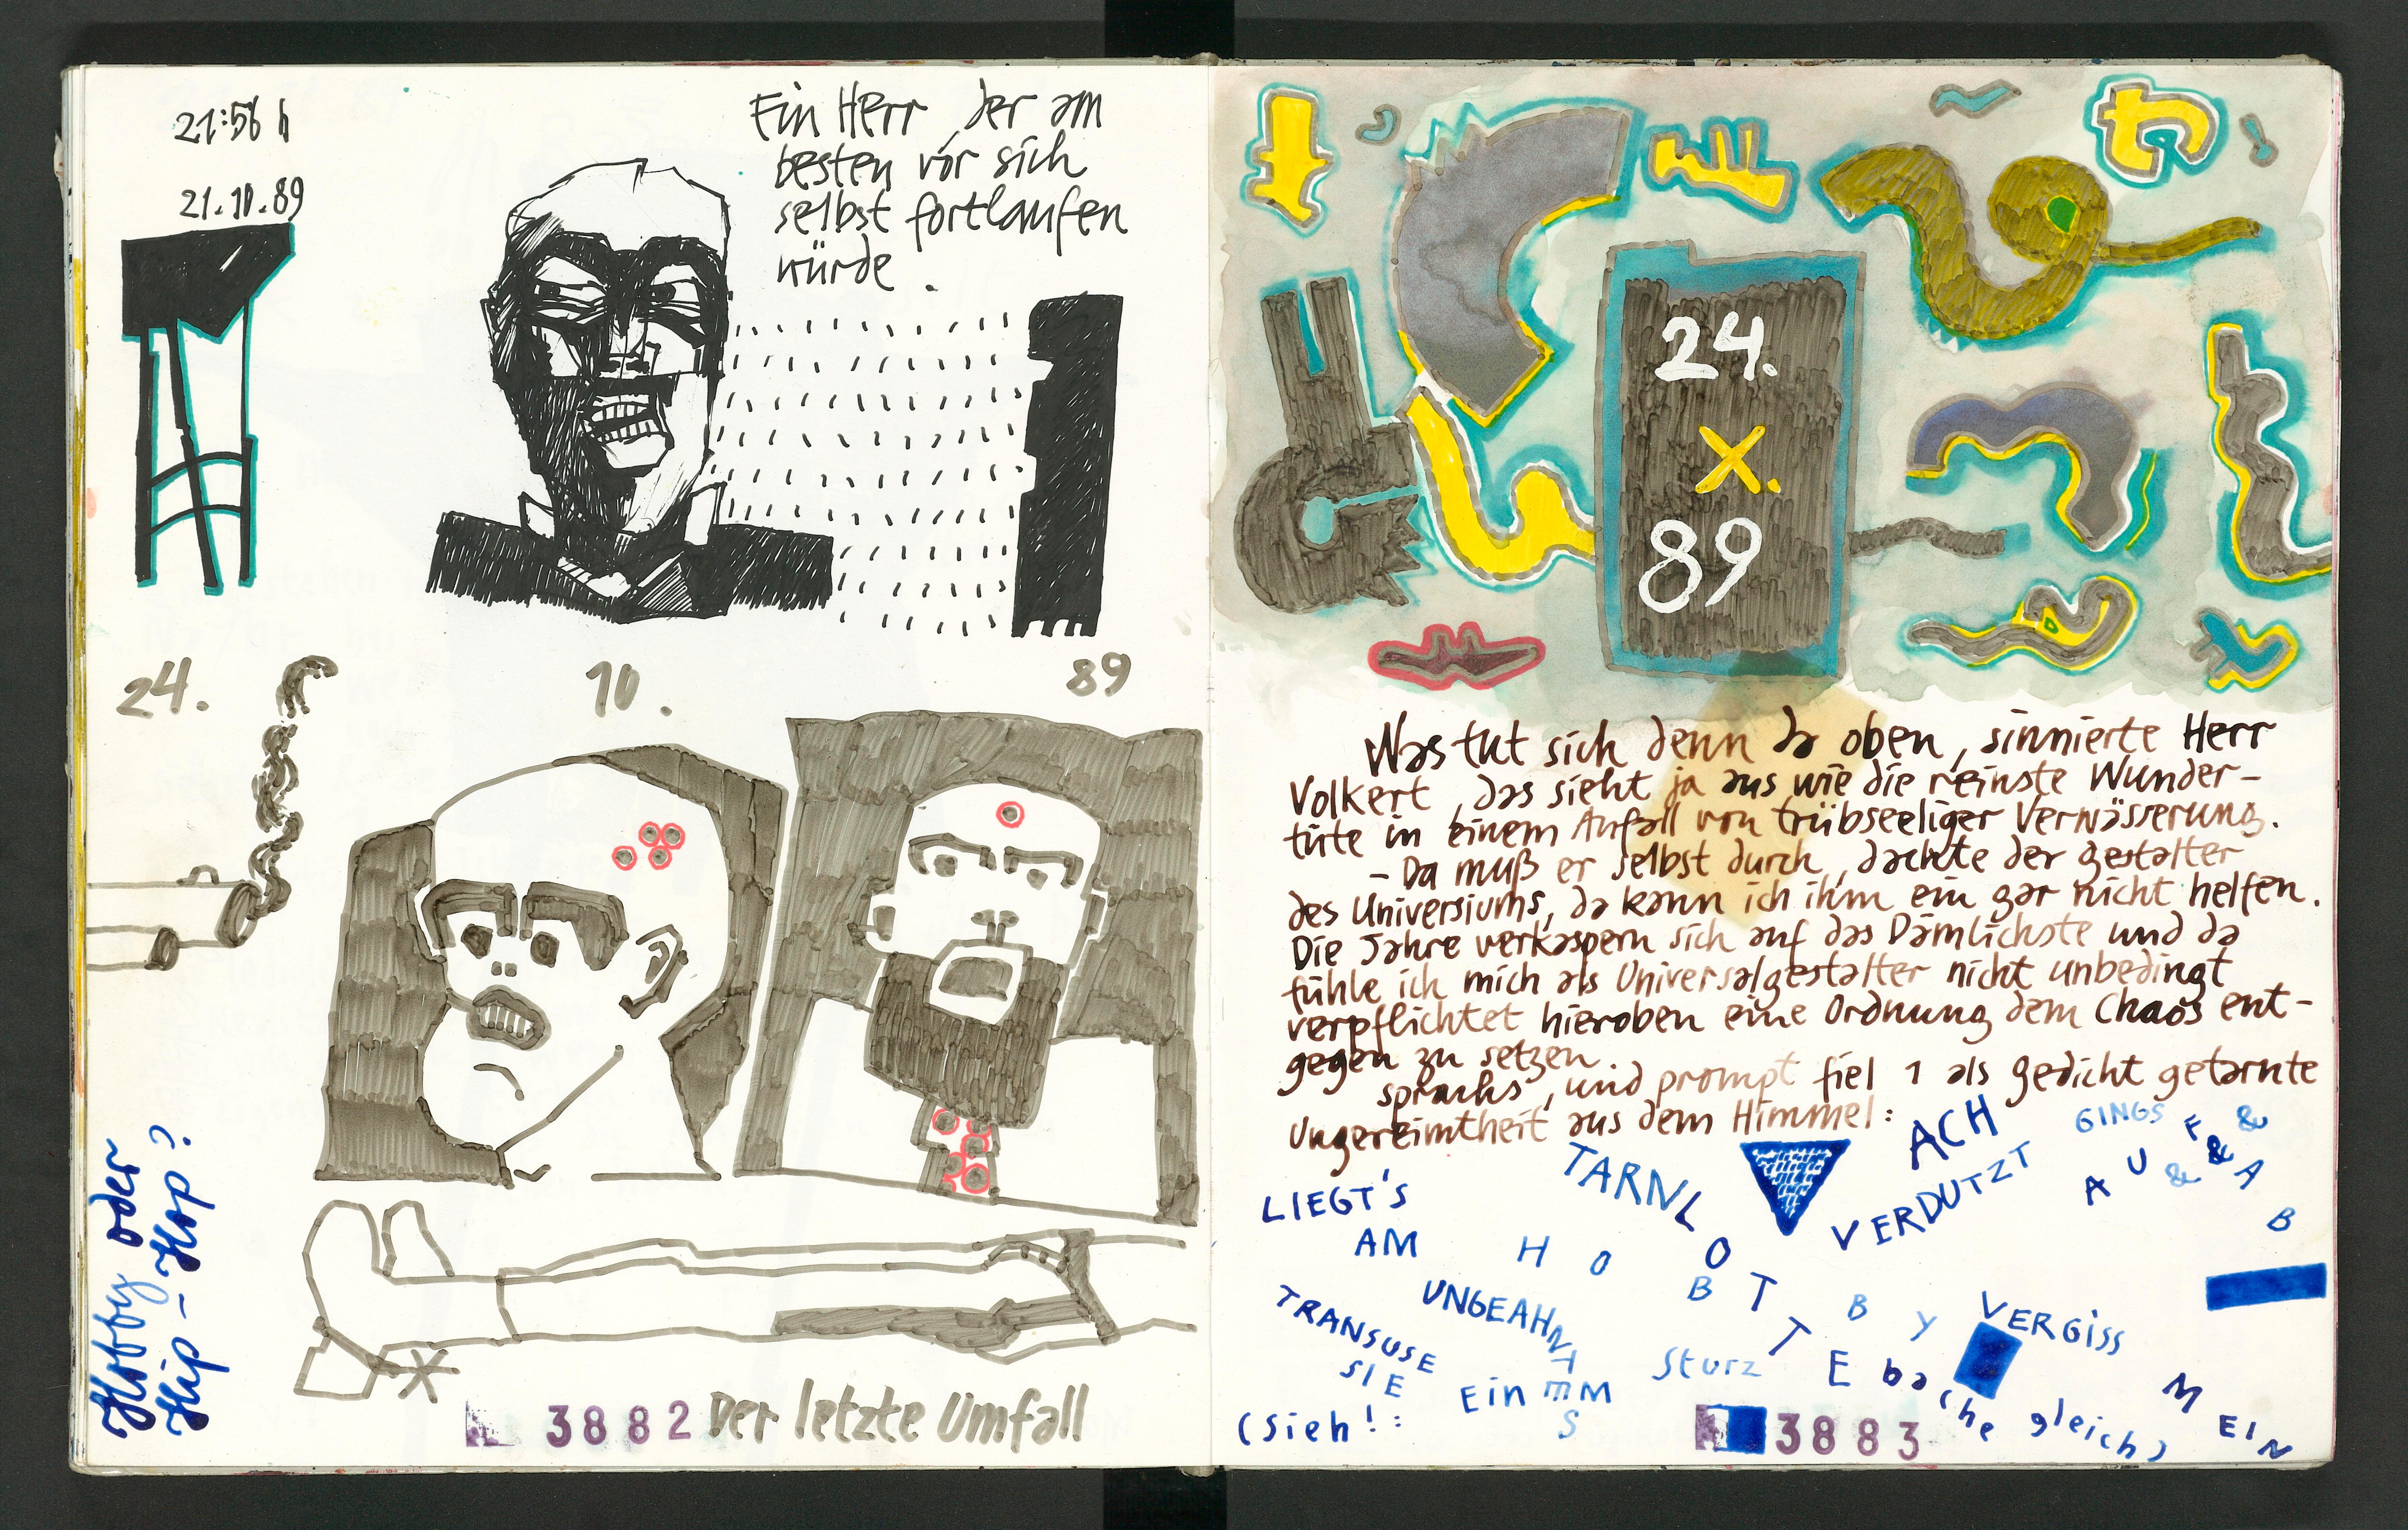 21:56 h
21.10.89
Ein Herr, der am
besten vor sich
selbst fortlaufen
würde.
24. 10. 89
Hobby oder
Hip-Hop?
3882
Der letzte Umfall
24.
X.
89
Was tut sich denn da oben, sinnierte Herr
Volkert, das sieht ja aus wie die reinste Wunder-
tüte in einem Anfall von trübseeliger Verwässerung.
- Da muß er selbst durch, dachte der Gestalter
des Universiums, da kann ich ihm ein gar nicht helfen.
Die Jahre verkaspern sich auf das Dämlichste und da
fühle ich mich als Universalgestalter nicht unbedingt
verpflichtet hieroben eine Ordnung dem Chaos ent-
gegen zu setzen.
sprachs, und prompt fiel 1 als Gedicht getarnte
Ungereimtheit aus dem Himmel:
LIEGT'S
AM
HOBBY
TARNLOTTE
ACH
VERDUTZT
GINGS
AUF & & & AB
TRANSUSE
SIE
UNGEAHNT
EinEMM
S
Sturz
bache gleich)
VERGISS
MEIN
(Sieh!:
3883